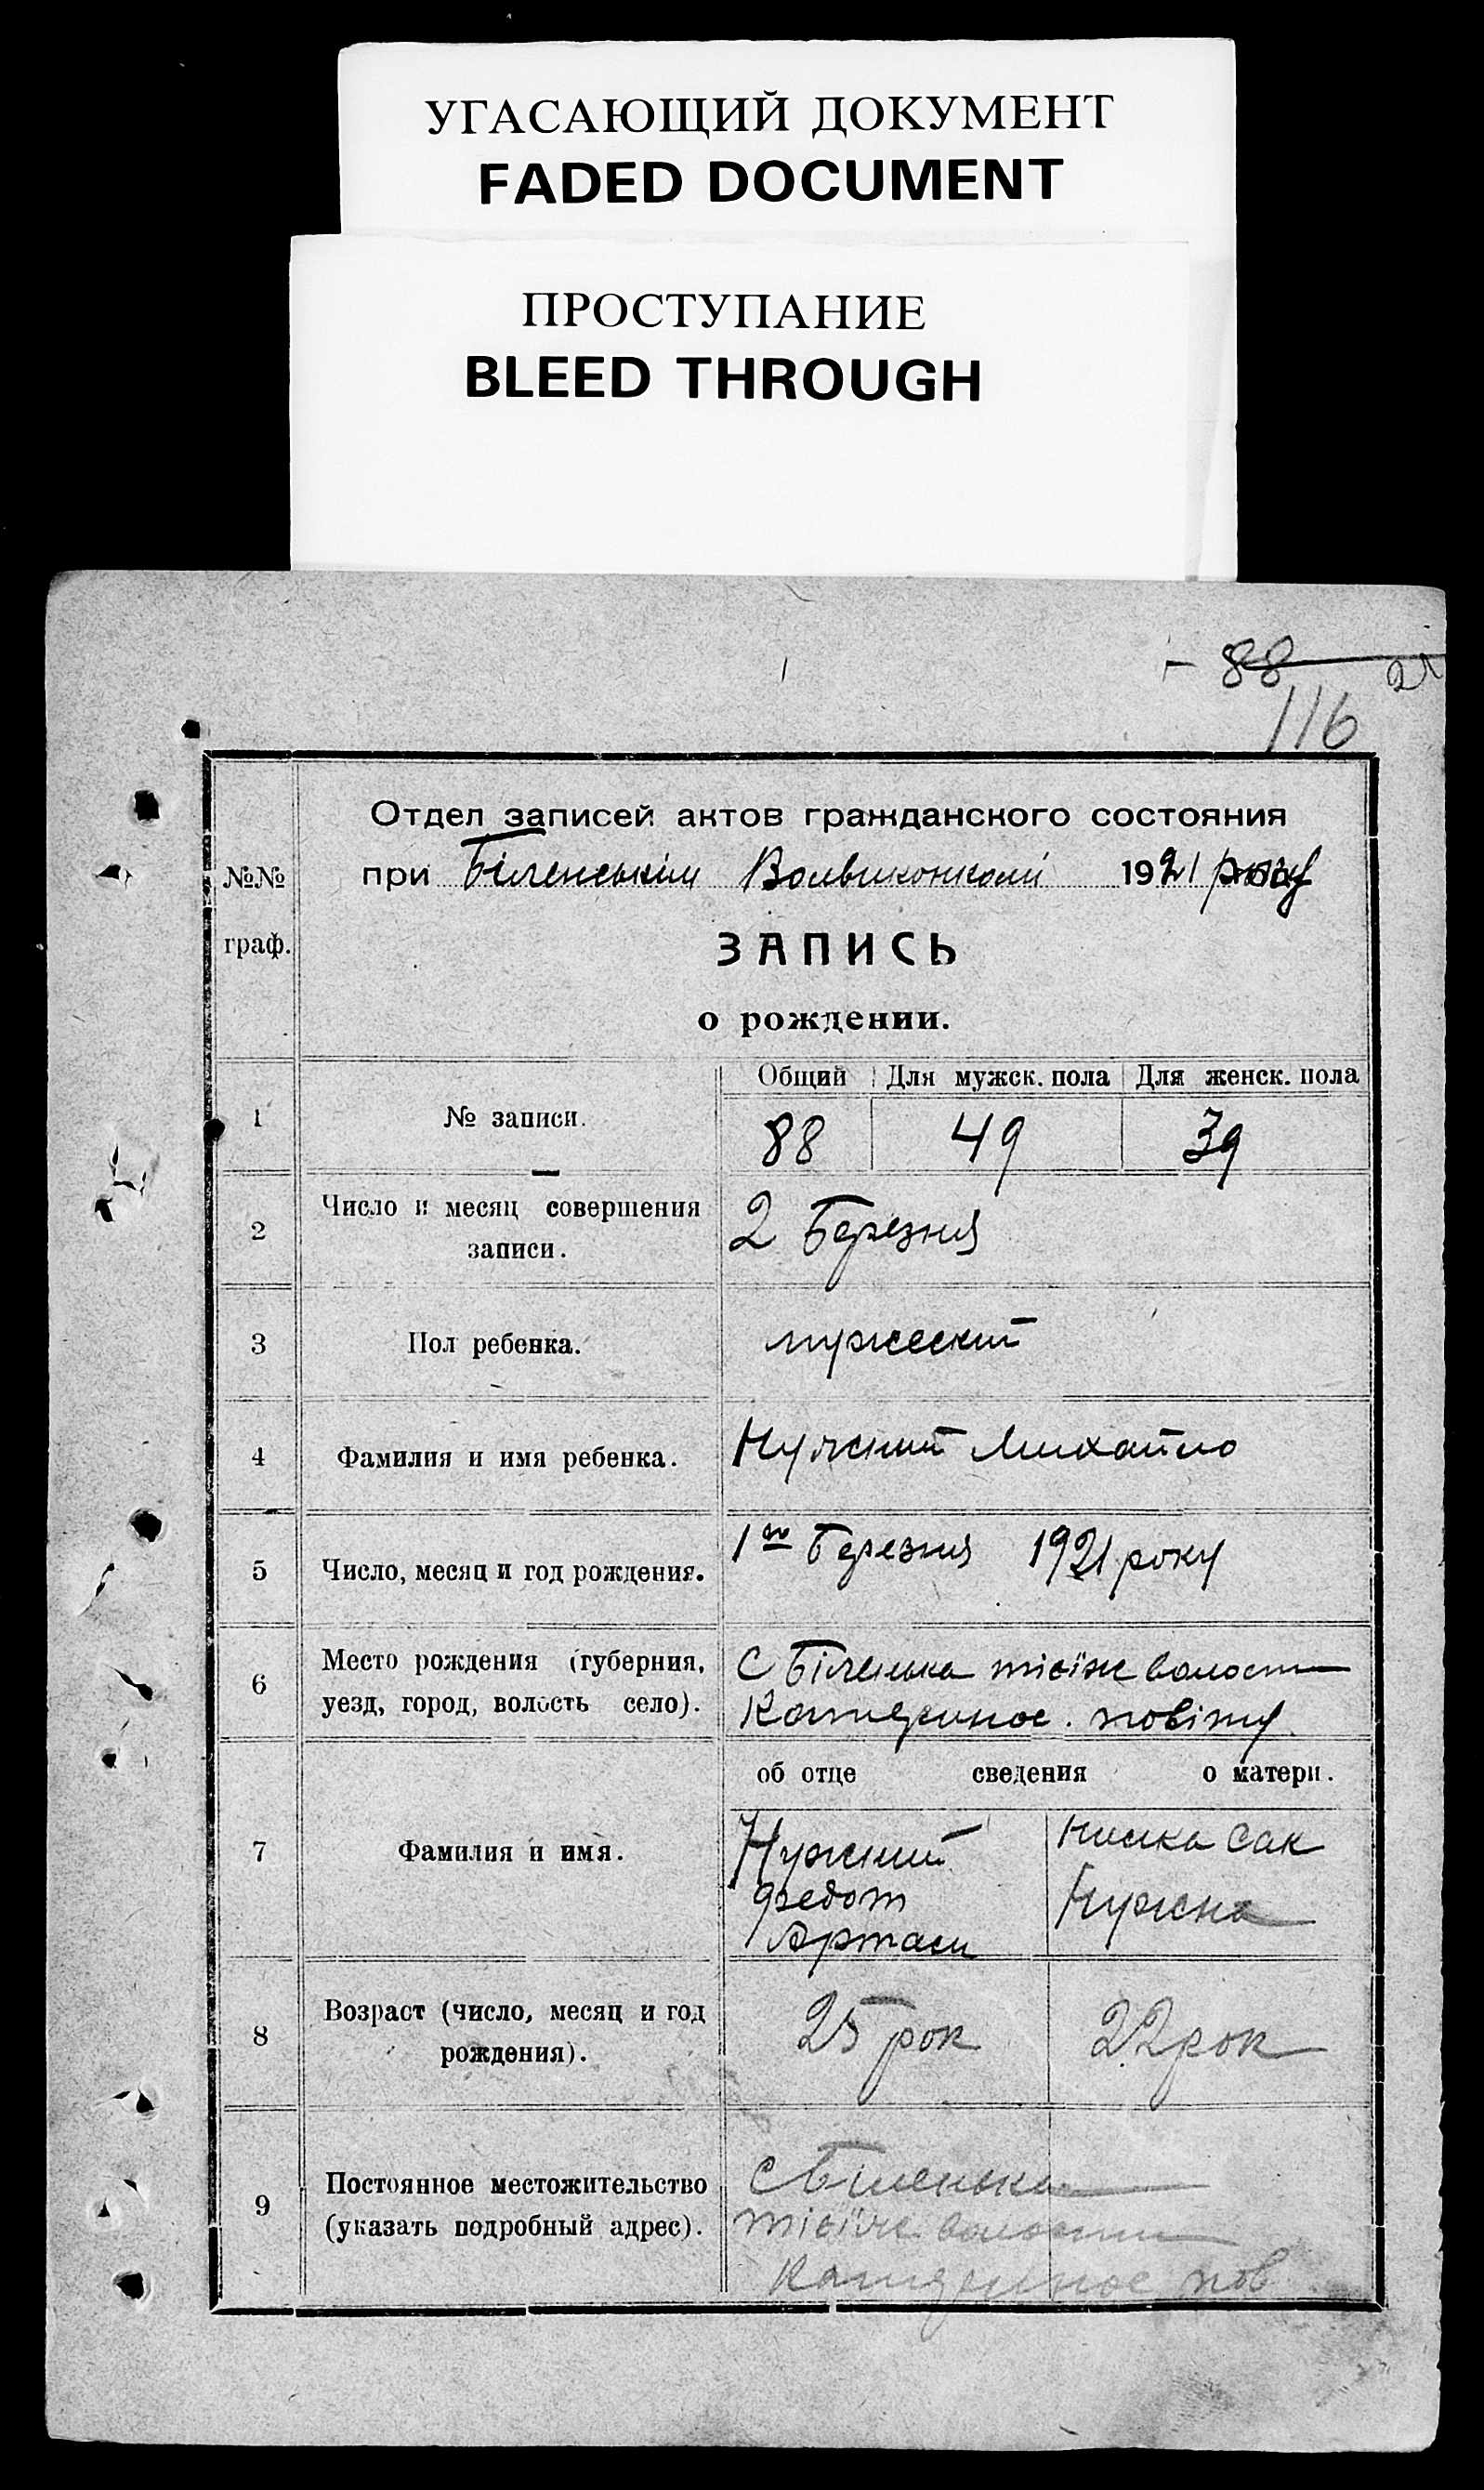 УГАСАЮЩИЙ ДОКУМЕНТ
FADED DOCUMENT
ПРОСТУПАНИЕ
BLEED THROUGH
88
116
№№ граф.
Отдел записей актов гражданского состояния
при Біленьскім Волвиконкомі 1921 року
ЗАПИСЬ
о рождении.
Общий Для мужск. пола Для женск. пола
1 № записи. 88 49 39
2 Число и месяц совершения записи. 2 Березня
3 Пол ребенка. мужеский
4 Фамилия и имя ребенка. Нужний Михайло
5 Число, месяц и год рождения. 1го Березня 1921 року
6 Место рождения (губерния, С Біленька тієїж волости
уезд, город, волость село). Катеринос. повіту
об отце сведения о матери.
7 Фамилия и имя. Нужний
Федот Нужна
8 Возраст (число, месяц и год рождения). 25 рок 22 рок
9 Постоянное местожительство с Біленька
(указать подробный адрес). тієїж волости
Катеринос пов